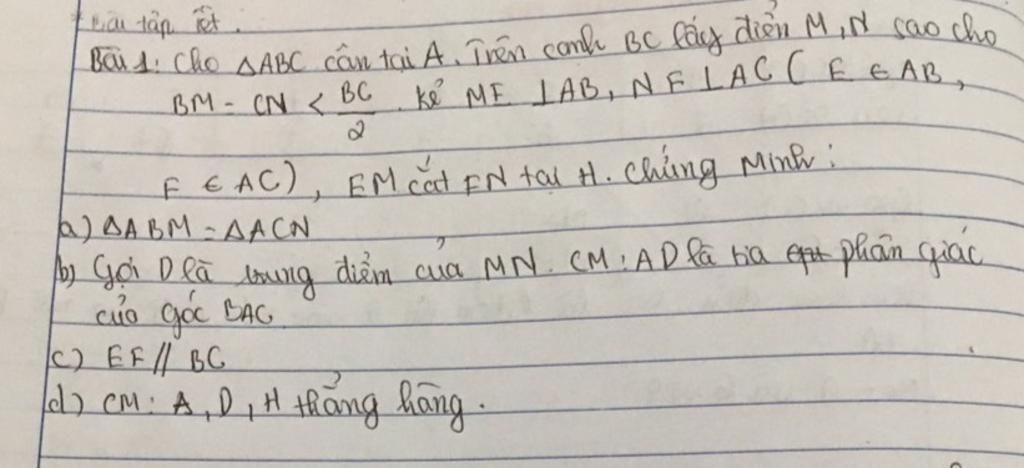 * Bài tập Tết.
Bài 1: Cho ΔABC cân tại A. Trên cạnh BC lấy điểm M, N sao cho
BM = CN < BC/2. kẻ ME ⊥ AB, NF ⊥ AC ( E ∈ AB,
F ∈ AC), EM cắt FN tại H. Chứng Minh:
a) ΔABM = ΔACN
b) Gọi D là trung điểm của MN. CM: AD là tia phân giác
của góc BAC
c) EF // BC
d) CM: A, D, H thẳng hàng.